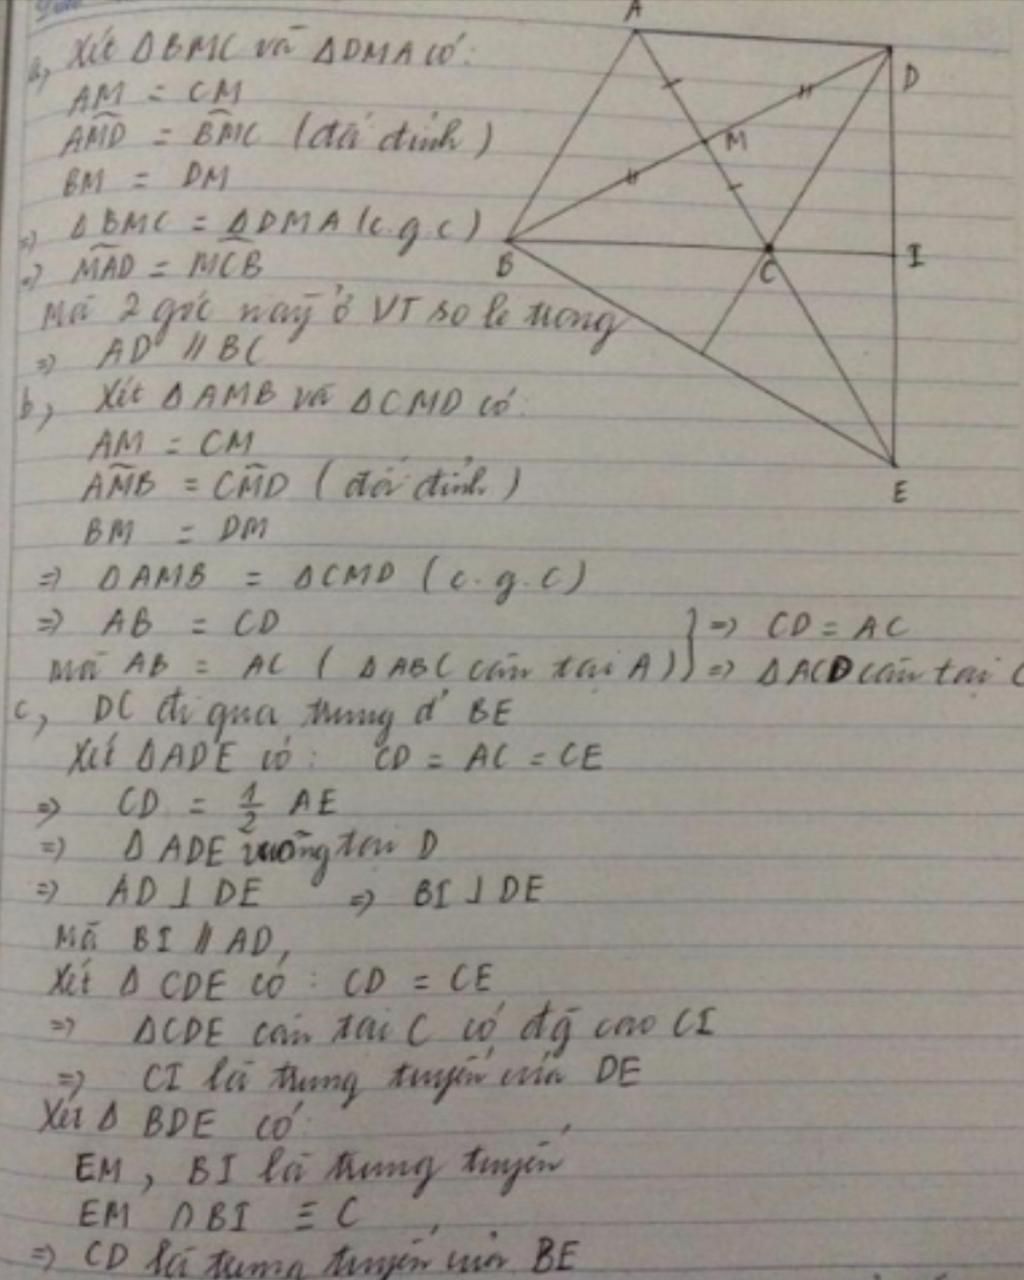 a, Xét ΔBMC và ΔDMA có:
AM = CM
AM̂D = BM̂C (đối đỉnh)
BM = DM
=> ΔBMC = ΔDMA (c.g.c)
=> MÂD = MĈB
Mà 2 góc này ở VT so le trong
=> AD // BC
b, Xét ΔAMB và ΔCMD có:
AM = CM
AM̂B = CM̂D (đối đỉnh)
BM = DM
=> ΔAMB = ΔCMD (c.g.c)
=> AB = CD } => CD = AC
Mà AB = AC (ΔABC cân tại A) } => ΔACD cân tại C
c, DC đi qua trung đ' BE
Xét ΔADE có: CD = AC = CE
=> CD = 1/2 AE
=> ΔADE vuông tại D
=> AD ⊥ DE => BI ⊥ DE
Mà BI // AD,
Xét ΔCDE có: CD = CE
=> ΔCDE cân tại C có đg cao CI
=> CI là trung tuyến của DE
Xét Δ BDE có:
EM, BI là trung tuyến
EM ∩ BI ≡ C
=> CD là trung tuyến của BE
A
D
M
B
C
I
E